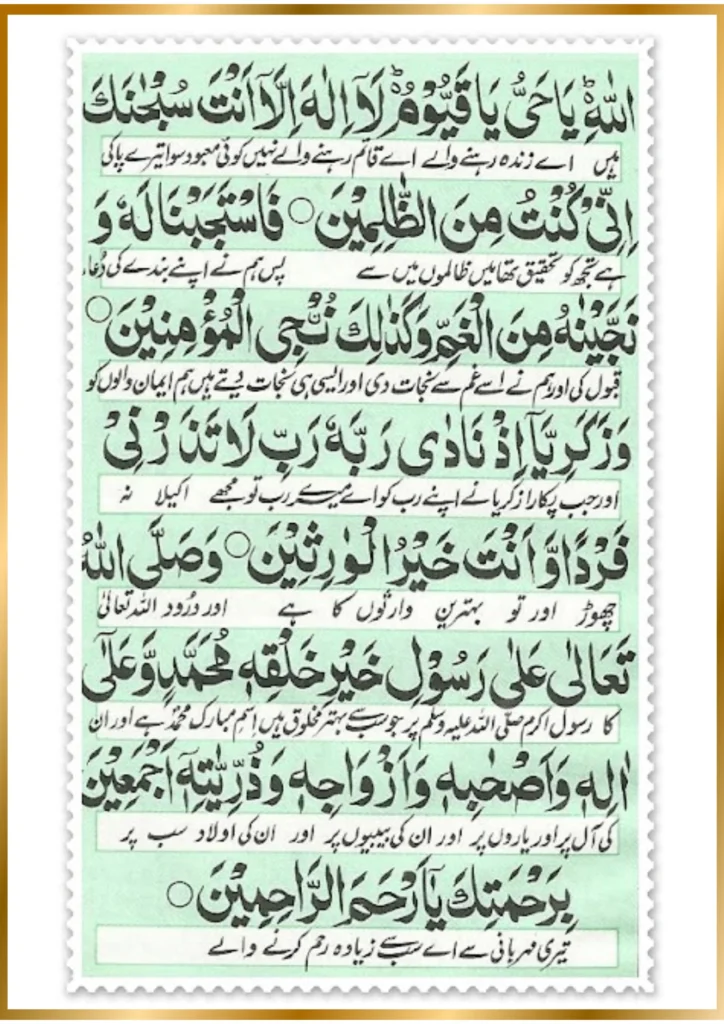 اللّٰهِ ؕ يَا حَيُّ يَا قَيُّوْمُ ؕ لَآ اِلٰهَ اِلَّآ اَنْتَ سُبْحٰنَكَ
ہیں اے زندہ رہنے والے اے قائم رہنے والے نہیں کوئی معبود سوا تیرے پاکی
اِنِّيْ كُنْتُ مِنَ الظّٰلِمِيْنَ ○ فَاسْتَجَبْنَا لَهٗ وَ
ہے تجھ کو تحقیق تھا میں ظالموں میں سے پس ہم نے اپنے بندے کی دُعا
نَجَّيْنٰهُ مِنَ الْغَمِّ وَكَذٰلِكَ نُنْجِي الْمُؤْمِنِيْنَ ○
قبول کی اور ہم نے اسے غم سے نجات دی اور ایسی ہی نجات دیتے ہیں ہم ایمان والوں کو
وَزَكَرِيَّآ اِذْ نَادٰى رَبَّهٗ رَبِّ لَا تَذَرْنِيْ
اور جب پکارا زکریا نے اپنے رب کو اے میرے رب تو مجھے اکیلا نہ
فَرْدًا وَّاَنْتَ خَيْرُ الْوٰرِثِيْنَ ○ وَصَلَّى اللّٰهُ
چھوڑ اور تو بہترین وارثوں کا ہے اور درود اللہ تعالیٰ
تَعَالٰى عَلٰى رَسُوْلِ خَيْرِ خَلْقِهٖ مُحَمَّدٍ وَّعَلٰٓى
کا رسول اکرم صلی اللہ علیہ وسلم پر جو سب سے بہتر مخلوق ہیں اسم مبارک محمدؐ ہے اور ان
اٰلِهٖ وَاَصْحٰبِهٖ وَاَزْوَاجِهٖ وَذُرِّيّٰتِهٖٓ اَجْمَعِيْنَ
کی آل پر اور یاروں پر اور ان کی بیبیوں پر اور ان کی اولاد سب پر
بِرَحْمَتِكَ يَآ اَرْحَمَ الرَّاحِمِيْنَ ○
تیری مہربانی سے اے سب سے زیادہ رحم کرنے والے